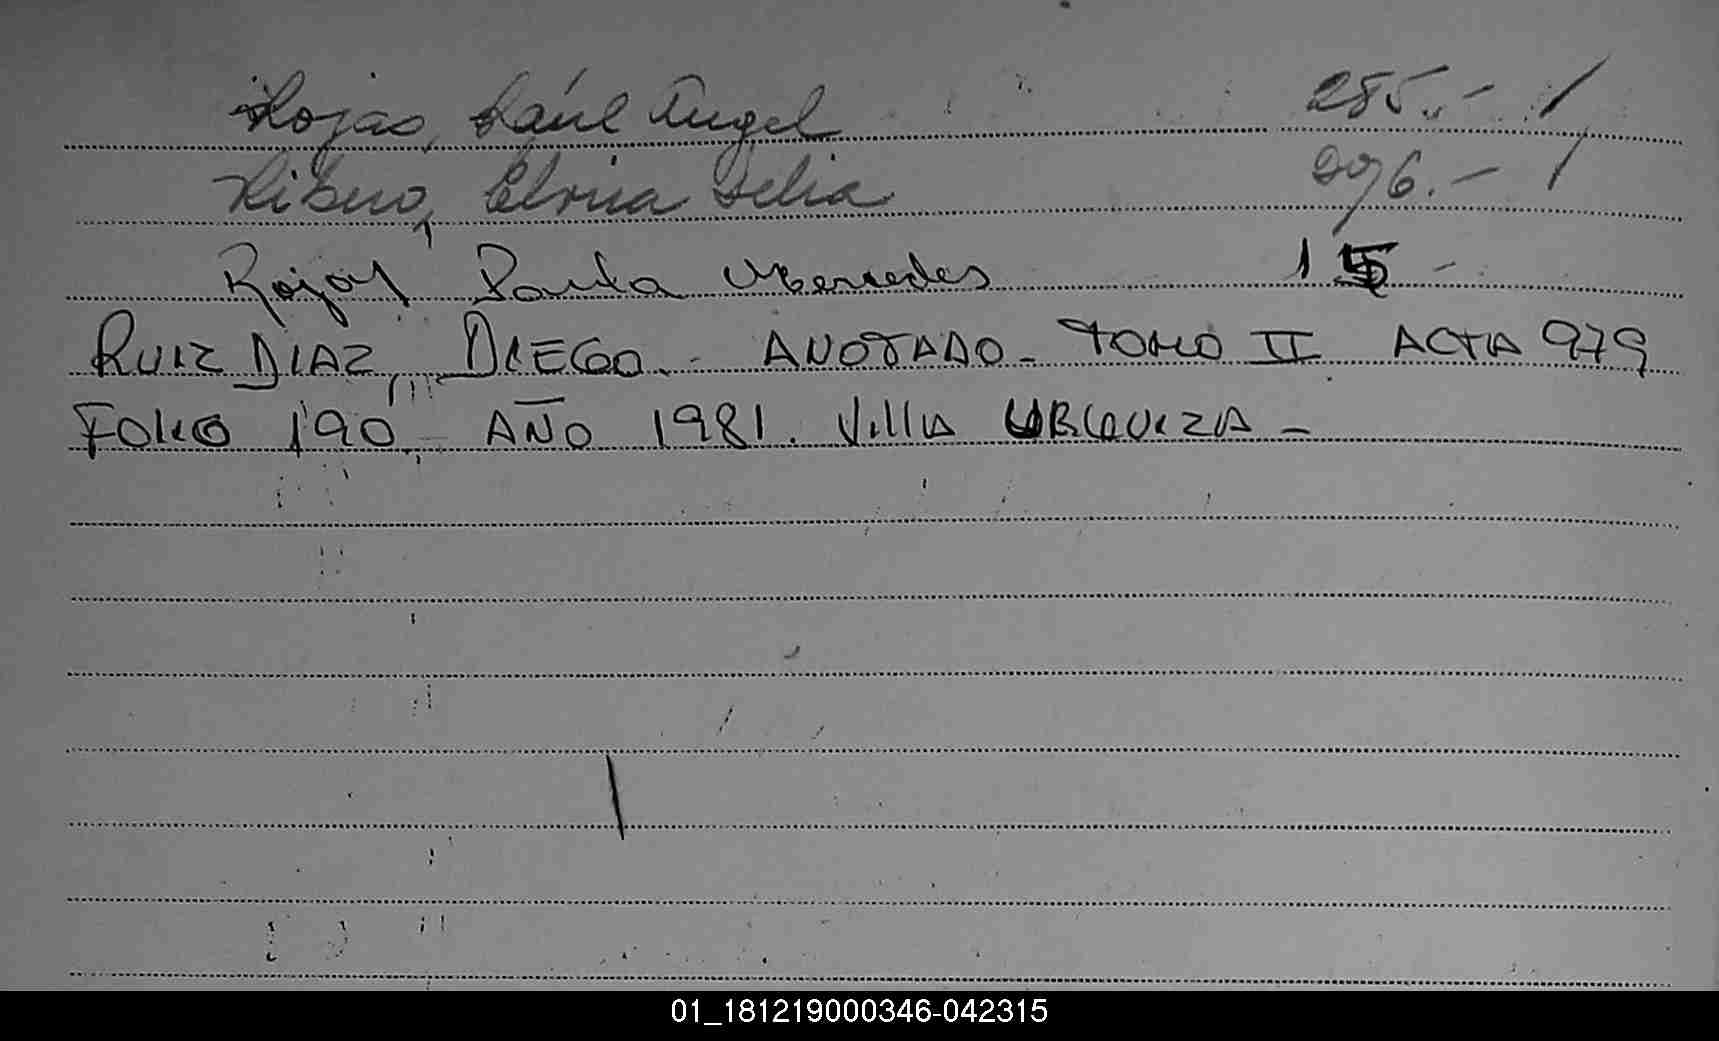 Rojas, Raúl Angel 285.- 1
Elvira Delia 296.- 1
Rojas Paula Mercedes 15 -
RUIZ DIAZ, DIEGO.- ANOTADO - TOMO II ACTA 979
FOLIO 190 - AÑO 1981. Villa URQUIZA -
01_181219000346-042315